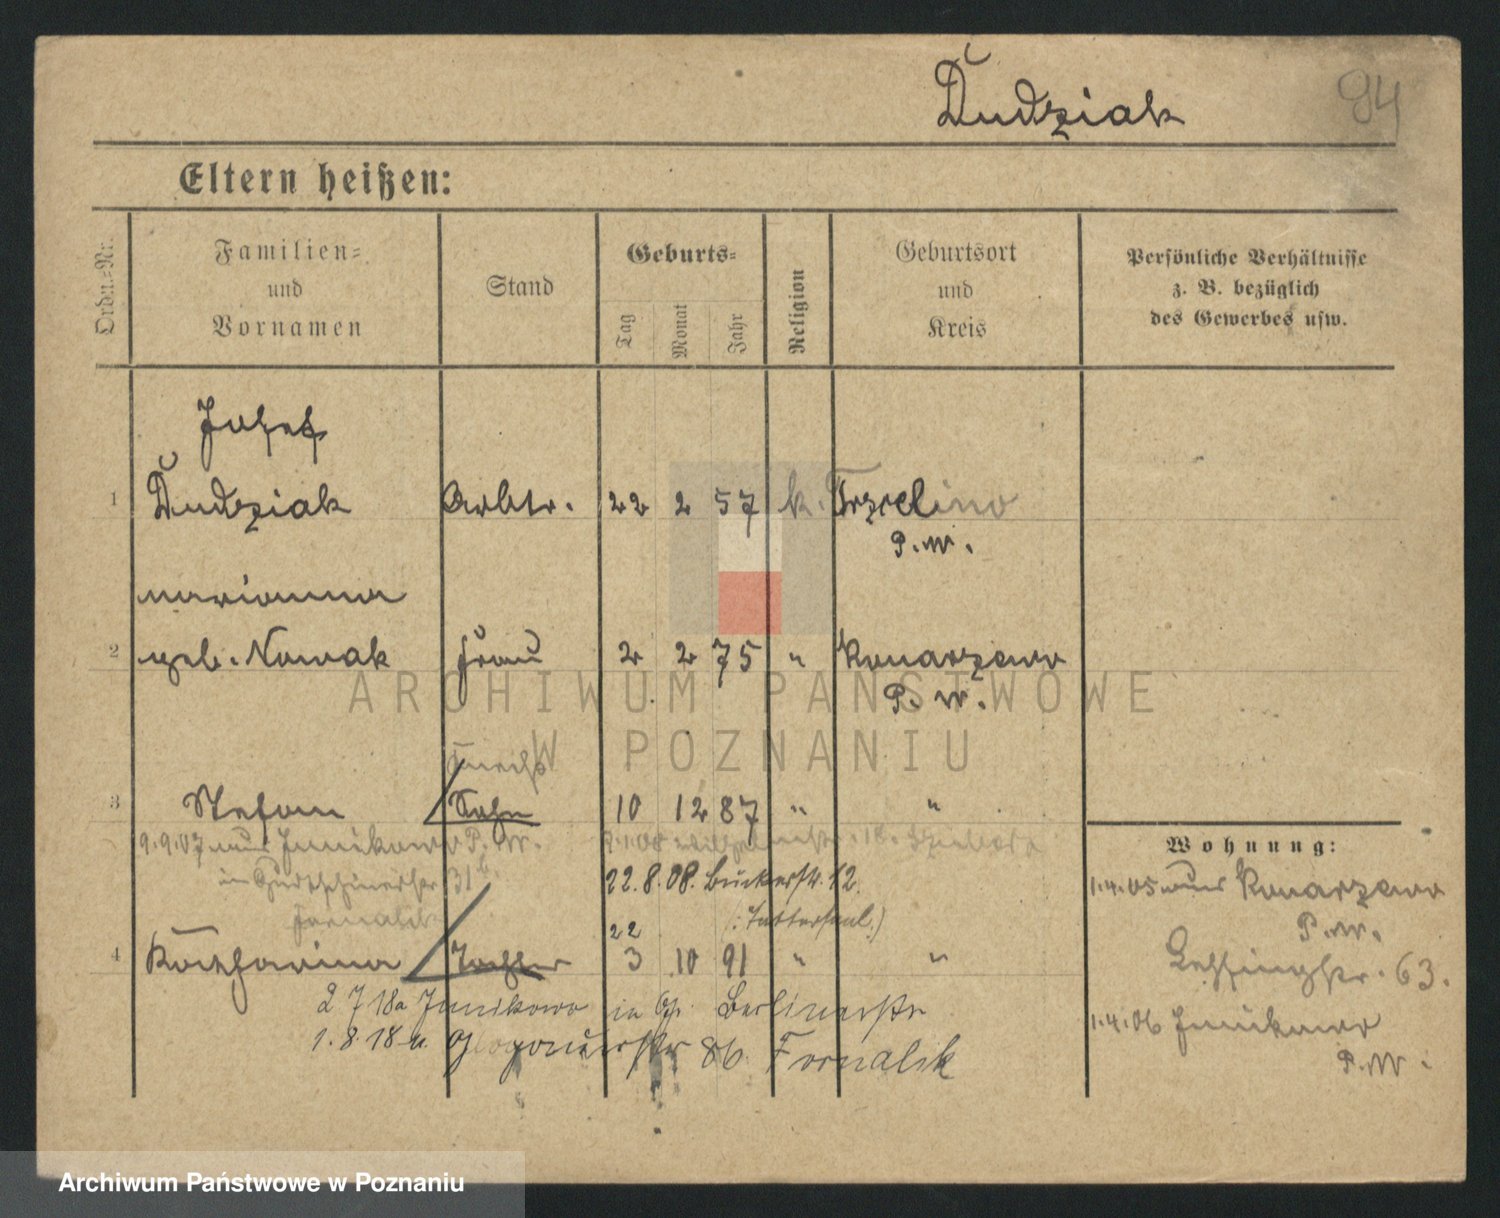 Dudziak
94
Eltern heißen:
Ordn.=Nr.
Familien=
und
Vornamen
Stand
Geburts=
Tag
Monat
Jahr
Religion
Geburtsort
und
Kreis
Persönliche Verhältnisse
z. B. bezüglich
des Gewerbes usw.
Josef
1 Dudziak Arbtr. 22 2 57 k. Trzcelino
P. W.
Marianna
2 geb. Nowak Frau 2 2 75 " Konarzewo
P. W.
ARCHIWUM PAŃSTWOWE
W POZNANIU
Knecht
3 Stefan Sohn 10 12 87 " "
9.9.07 aus Junikowo P. W.
22.8.08. Buckerstr. 12.
22
4 Katharina Tochter 3 10 91 " "
2 7 18 a Junikowo in Gl. Berlinerstr
1. 8. 18 a. Glogauerstr 86 Fornalik
Wohnung:
1.4.05 aus Konarzewo
P. W.
Lessingstr. 63.
1.4.06 Junikowo
P. W.
Archiwum Państwowe w Poznaniu